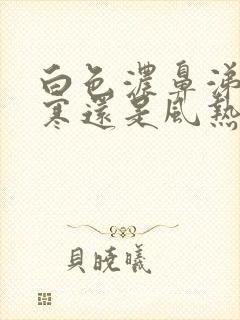 白色濃鼻涕
寒還是風熱
貝曉曦